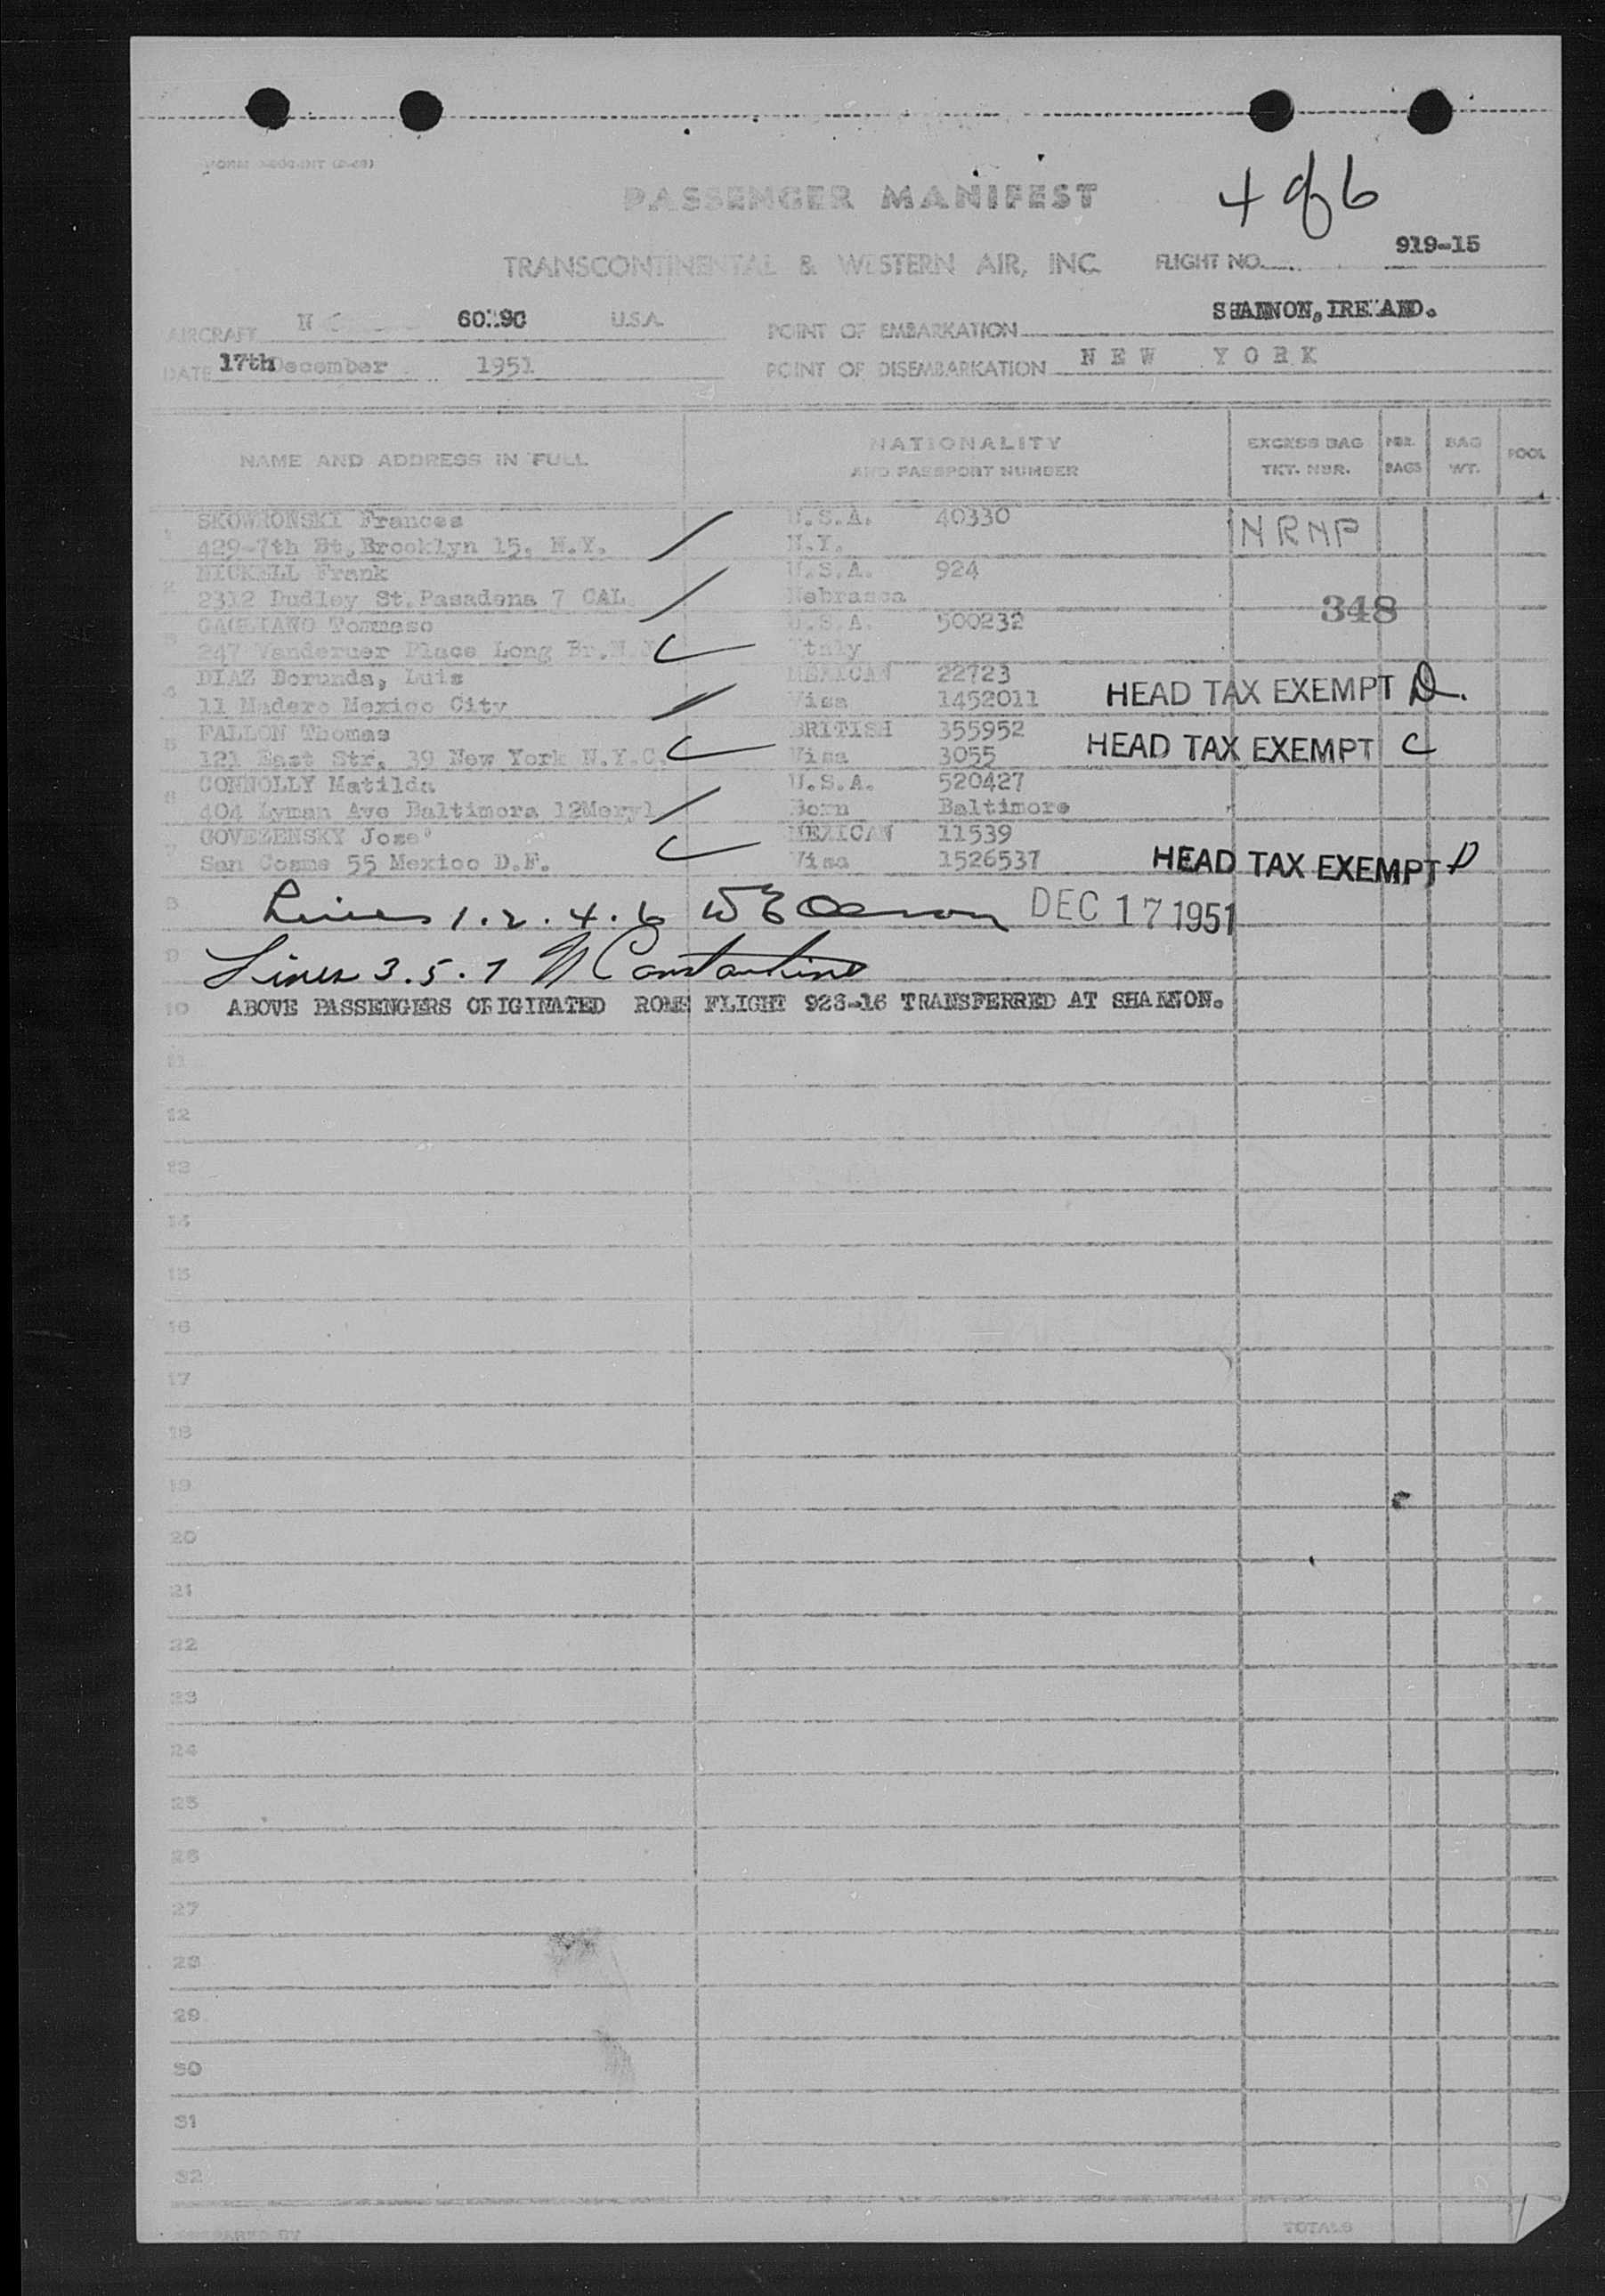 4 of 6
PASSENGER MANIFEST
TRANSCONTINENTAL & WESTERN AIR, INC. FLIGHT NO. 919-15
AIRCRAFT N U.S.A. POINT OF EMBARKATION SHANNON, IRELAND.
DATE 17th December 1951 POINT OF DISEMBARKATION NEW YORK
NAME AND ADDRESS IN FULL NATIONALITY AND PASSPORT NUMBER EXCESS BAG TKT. NBR. NBR. BAGS BAG WT. POOL
1 SKOWRONSKI Frances U.S.A. 40330 NRNP
429-7th St, Brooklyn 15, N.Y. N.Y.
2 NICKELL Frank U.S.A. 924
2312 Dudley St. Pasadena 7 CAL. Nebrasca 348
3 GAGLIANO Tommaso U.S.A. 500232
247 Place Long Br. N.J Italy
4 DIAZ Borunda, Luis MEXICAN 22723
11 Madero Mexico City Visa 1452011 HEAD TAX EXEMPT D.
5 FALLON Thomas BRITISH 355952
121 East Str. 39 New York N.Y.C. Visa 3055 HEAD TAX EXEMPT C
6 CONNOLLY Matilda U.S.A. 520427
404 Lyman Ave Baltimora 12Meryl Born Baltimore
7 GOVEZENSKY Jose' MEXICAN 11539
San Cosme 55 Mexico D.F. Visa 1526537 HEAD TAX EXEMPT D
8 Lines 1.2.4.6 DEC 17 1951
9 Lines 3.5.7 N Constantine
10 ABOVE PASSENGERS ORIGINATED ROME FLIGHT 923-16 TRANSFERRED AT SHANNON.
11
12
13
14
15
16
17
18
19
20
21
22
23
24
25
26
27
28
29
30
31
32
PREPARED BY TOTALS